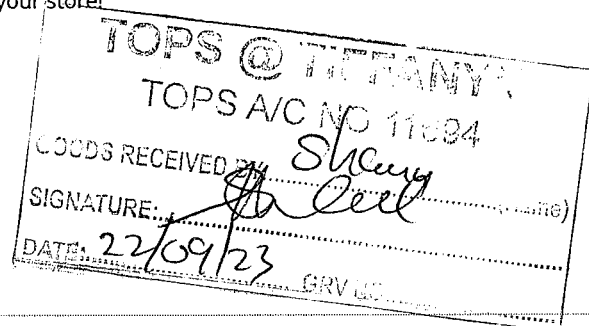 your store!
TOPS @ TIFFANY'S
TOPS A/C NO 11694
GOODS RECEIVED BY
SIGNATURE:
DATE: 22/09/23 GRV NO